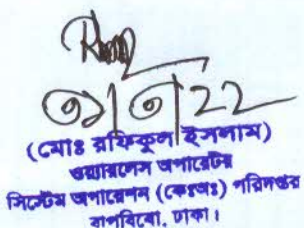 ৩১/৩/২২
(মোঃ রফিকুল ইসলাম)
ওয়্যারলেস অপারেটর
সিস্টেম অপারেশন (কেঃঅঃ) পরিদপ্তর
বাপবিবো, ঢাকা।